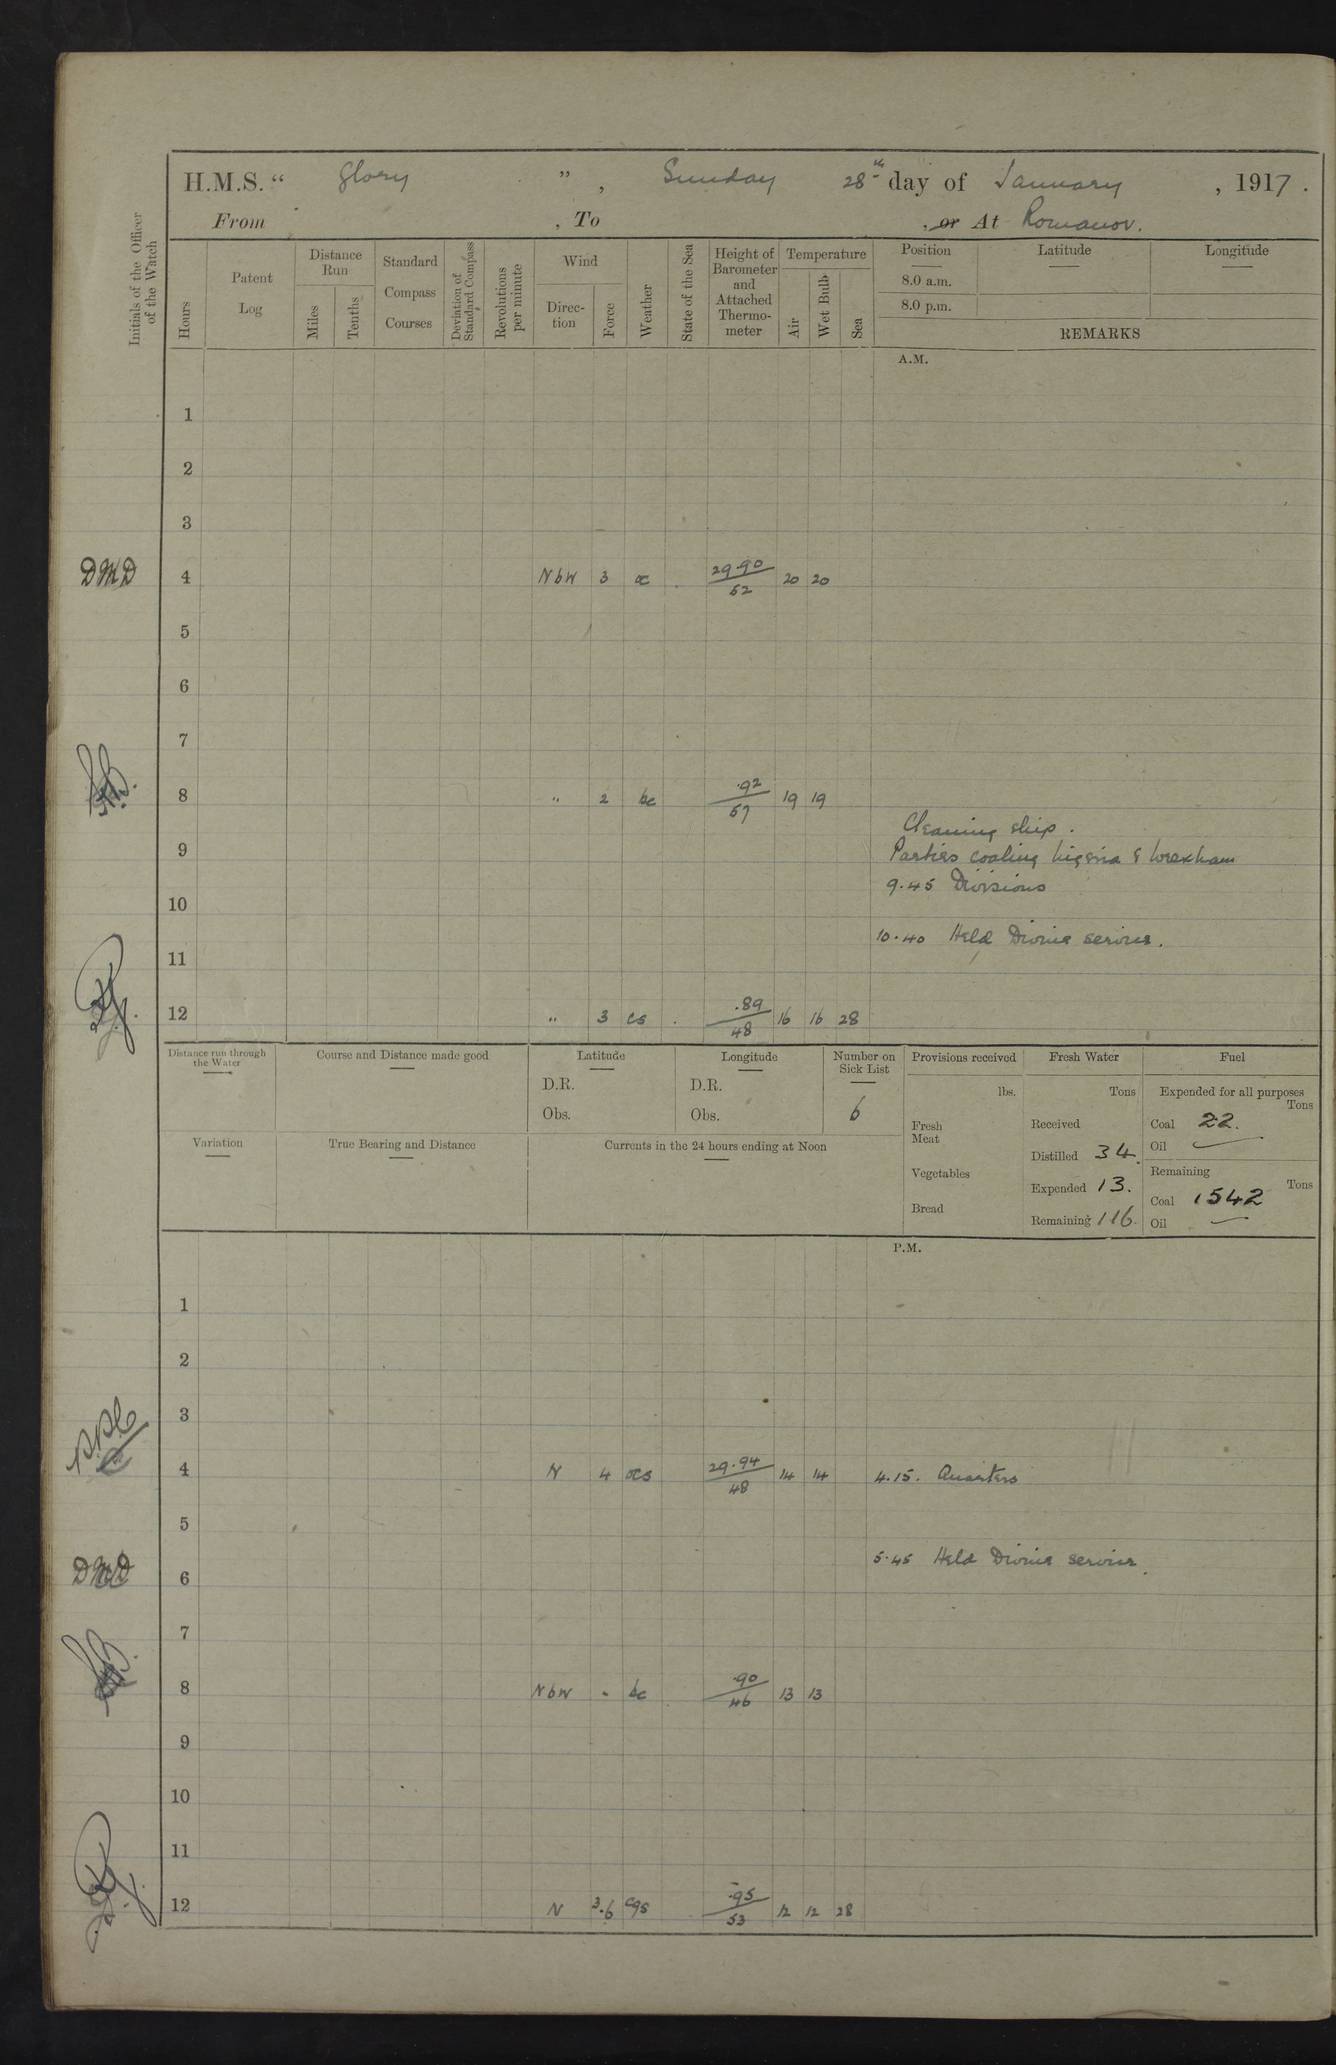 H.M.S. “ Glory ” , Sunday 28th day of January , 1917 .
From , To , or At Romanov.
Initials of the Officer of the Watch
Hours
Patent Log
Distance Run
Miles
Tenths
Standard Compass Courses
Deviation of Standard Compass
Revolutions per minute
Wind
Direc- tion
Force
Weather
State of the Sea
Height of Barometer and Attached Thermo- meter
Temperature
Air
Wet Bulb
Sea
Position
8.0 a.m.
8.0 p.m.
Latitude
Longitude
REMARKS
A.M.
1
2
3
DMD 4 NbW 3 oc 29.90/52 20 20
5
6
7
8 " 2 bc .92/57 19 19
Cleaning ship.
9 Parties coaling & Wrexham
9.45 Divisions
10
10.40 Held Divine service.
11
12 " 3 cs .89/48 16 16 28
Distance run through the Water
Course and Distance made good
Latitude
D.R.
Obs.
Longitude
D.R.
Obs.
Number on Sick List
6
Provisions received
lbs.
Fresh Meat
Vegetables
Bread
Fresh Water
Tons
Received
Distilled 34.
Expended 13.
Remaining 116.
Fuel
Expended for all purposes
Tons
Coal 22.
Oil —
Remaining
Tons
Coal 1542
Oil —
Variation
True Bearing and Distance
Currents in the 24 hours ending at Noon
P.M.
1
2
3
4 N 4 ocs 29.94/48 14 14 4.15. Quarters
5
5.45 Held Divine service.
DMD 6
7
8 NbW " bc .90/46 13 13
9
10
11
12 N 3.6 cqs .95/53 12 12 28